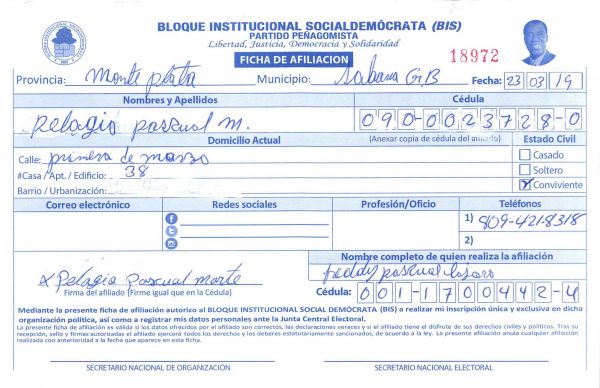 BLOQUE INSTITUCIONAL SOCIALDEMÓCRATA (BIS)
PARTIDO PEÑAGOMISTA
Libertad, Justicia, Democracia y Solidaridad
FICHA DE AFILIACION
18972
Provincia: Monte plata Municipio: Sabana G.B Fecha: 23 03 19
Nombres y Apellidos Cédula
pelagio pascual M. 090-0023728-0
Domicilio Actual (Anexar copia de cédula del afiliado) Estado Civil
Calle: primera de marzo Casado
#Casa / Apt. / Edificio: 38 Soltero
Barrio / Urbanización: Conviviente
Correo electrónico Redes sociales Profesión/Oficio Teléfonos
1) 809-421-8318
2)
Nombre completo de quien realiza la afiliación
x Pelagio Pascual Morte freddy pascual
Firma del afiliado (Firme igual que en la Cédula) Cédula: 001-1700442-4
Mediante la presente ficha de afiliación autorizo al BLOQUE INSTITUCIONAL SOCIAL DEMÓCRATA (BIS) a realizar mi inscripción única y exclusiva en dicha
organización política, así como a registrar mis datos personales ante la Junta Central Electoral.
La presente ficha de afiliación es válida si los datos ofrecidos por el afiliado son correctos, las declaraciones veraces y si el afiliado tiene el disfrute de sus derechos civiles y políticos. Tras su
recepción, sello y firmas autorizadas el afiliado ejercerá todos los derechos y los deberes estatutariamente sancionados, de acuerdo a la ley. La presente afiliación anula cualquier afiliación
realizada con anterioridad a la fecha que aparece en esta ficha.
SECRETARIO NACIONAL DE ORGANIZACIÓN SECRETARIO NACIONAL ELECTORAL